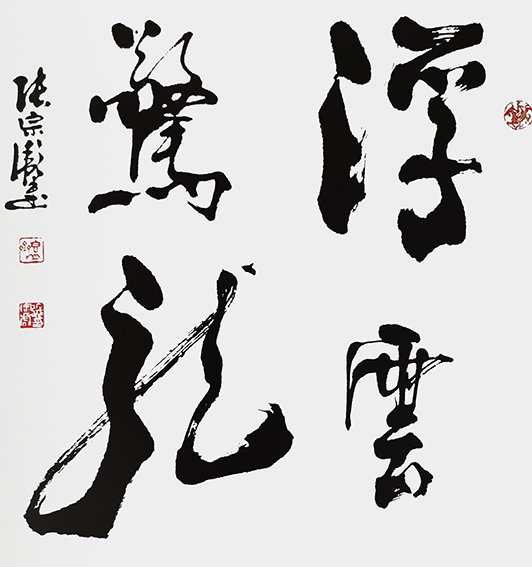 浮雲
驚龍
張宗彪書